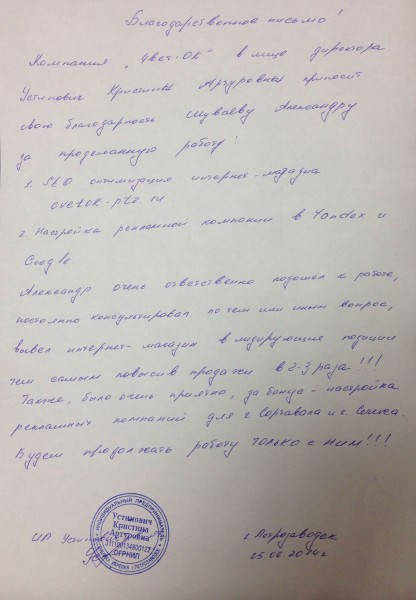 Благодарственное письмо!
Компания "Цвет-ОК" в лице директора
Устинович Кристины Артуровны приносит
свою благодарность Шуваеву Александру
за проделанную работу:
1. SEO оптимизация интернет-магазина
cvetok-ptz.ru
2. Настройка рекламной компании в Yandex и
Google.
Александр очень ответственно подошел к работе,
постоянно консультировал по тем или иным вопрос,
вывел интернет-магазин в лидирующие позиции
тем самым повысив продажи в 2-3 раза!!!
Также, было очень приятно, за бонус - настройка
рекламных компаний для г. Сортавала и г. Сегежа.
Будем продолжать работу только с ним!!!
ИП Устинович
ИНДИВИДУАЛЬНЫЙ ПРЕДПРИНИМАТЕЛЬ
Устинович
Кристина
Артуровна
ОГРНИП
г. Петрозаводск
25.06.2014г